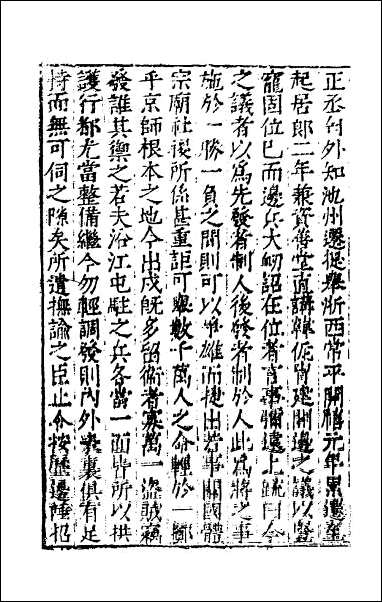 正丞台外知池州遷提舉浙西常平開禧元年累遷至
起居郎二年兼資善堂直講韓侂胄建開邊之議以堅
寵固位已而邊兵大衂詔在位者言事彌遠上疏曰今
之議者以為先發者制人後發者制於人此為將之事
施於一勝一負之間則可以爭雄而捷出若事關國體
宗廟社稷所係甚重詎可舉數千萬人之命輕於一擲
乎京師根本之地今出戍既多留衛者寡萬一盜賊竊
發誰其禦之若夫沿江屯駐之兵各當一面皆所以拱
護行都尤當整備繼今勿輕調發則內外表裏俱有足
恃而無可伺之隙矣所遣撫諭之臣止令按歷邊陲招